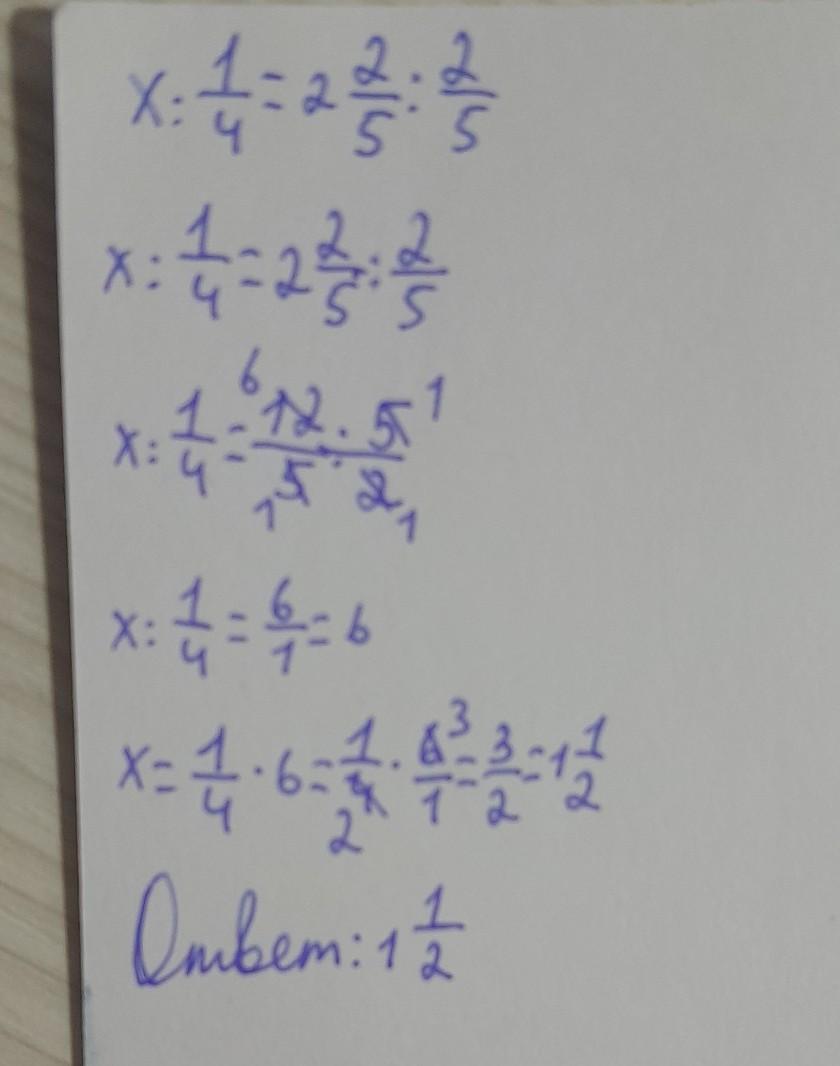 x : 1/4 = 2 2/5 : 2/5
x : 1/4 = 2 2/5 : 2/5
x : 1/4 = 6 12 · 5 1 / 1 5 · 2 1
x : 1/4 = 6/1 = 6
x = 1/4 · 6 = 1/4 2 · 6 3/1 = 3/2 = 1 1/2
Ответ: 1 1/2